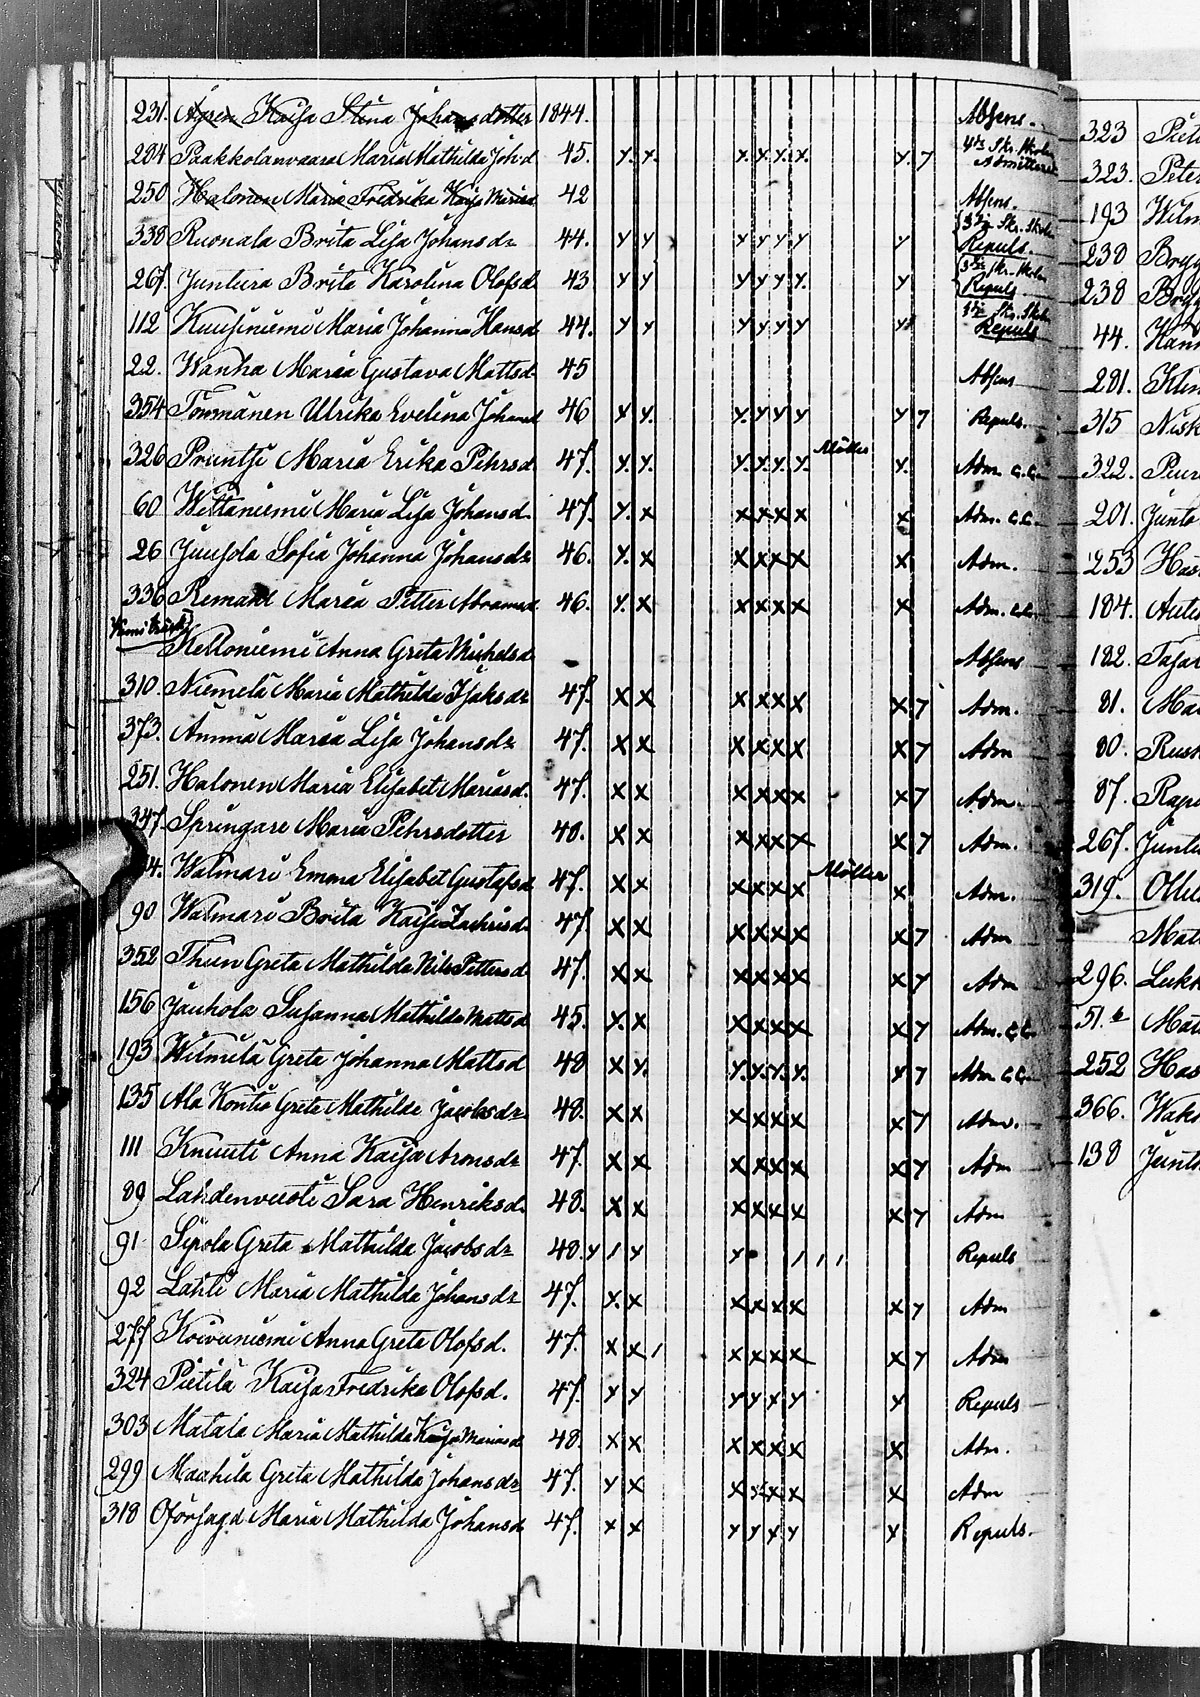 231. Ågren Kaisa Stina Johansdotter 1844. Absens.
204 Paakkolanvaara Maria Mathilda Joh.d 45. y. y. y. y. y. y. y 7 4de Skr. Skola Admitteras
250 Halonen Maria Fredrika Kajsa Mariasd 42 Absens.
338 Ruonala Brita Lisa Johansdr 44. y y y y y y y 3dje Skr. Skola Repuls.
267. Juntura Brita Karolina Olofsd 43 y y y y y y y 3dje Skr. Skola Repuls
112 Kuusiniemi Maria Johanna Hansd 44. y y y y y y y Skr. Skola Repuls
22. Wanha Maria Gustava Mattsd 45 Absens
354 Törmänen Ulrika Evelina Johansd 46 y. y. y. y y y y 7 Repuls.
326 Pruntsi Maria Erika Pehrsd 47. y. y. y. y. y. y. Möller y. Adm C.C.
60 Wettaniemi Maria Lisa Johansd. 47. y. x x x x x x Adm. C.C.
26 Juujola Sofia Johanna Johansdr 46. y. x x x x x x Adm.
336 Remahl Maria Petter Abramsd 46. y. x x x x x x Adm. C.C.
Kemi Träsk
Kelloniemi Anna Greta Michelsd Absens
310. Niemelä Maria Mathilda Isaksdr 47. x x x x x x x 7 Adm.
373. Ämmä Maria Lisa Johansdr 47. x x x x x x x 7 Adm
251. Halonen Maria Elisabet Mariasd. 47. x x x x x x x 7 Adm.
347. Springare Maria Pehrsdotter 48. x x x x x x x 7 Adm.
4. Walmari Emma Elisabet Gustafsd 47. x x x x x x Möller x Adm.
90 Walmari Brita Kaisa Zachrisd. 47. x x x x x x x 7 Adm
352 Thun Greta Mathilda Nils Pettersd 47. x x x x x x x y Adm
156 Jauhola Susanna Mathilda Mattsd 45. y. x x x x x x y Adm. C.C.
193 Wilmilä Greta Johanna Mattsd 48 x y. y. y. y. y. y 7 Adm C.C.
135 Ala Kontio Greta Mathilda Jacobsdr 48. x x x x x x x y Adm.
111 Knuuti Anna Kaisa Aronsdr 47. x x x x x x x y Adm
89 Lahdenvuoti Sara Henriksd. 48. x x x x x x x y Adm
91 Sipola Greta Mathilda Jacobsdr 48. y / y y / / / Repuls
92 Lahti Maria Mathilda Johansdr 47. x. x x x x x x y Adm
277 Koivuniemi Anna Greta Olofsd. 47. x x / x x x x x y Adm
324 Pietilä Kaisa Fredrika Olofsd. 47. y y y y y y y Repuls
303 Matala Maria Mathilda Kaisa Mariasd 48. x x x x x x x Adm.
299 Maahila Greta Mathilda Johansdr 47. y x x x x x x Adm
318 Oförsagd Maria Mathilda Johansd 47. x x y y y y y Repuls.
323
323.
193
230
238
44.
281.
315
322.
201.
253
184.
182.
81.
80.
87.
267.
319.
296.
51.
252
366.
138